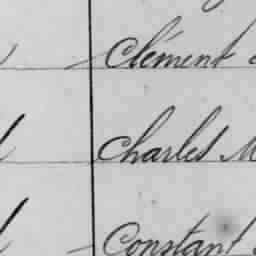 Clément
Charles M
Constant